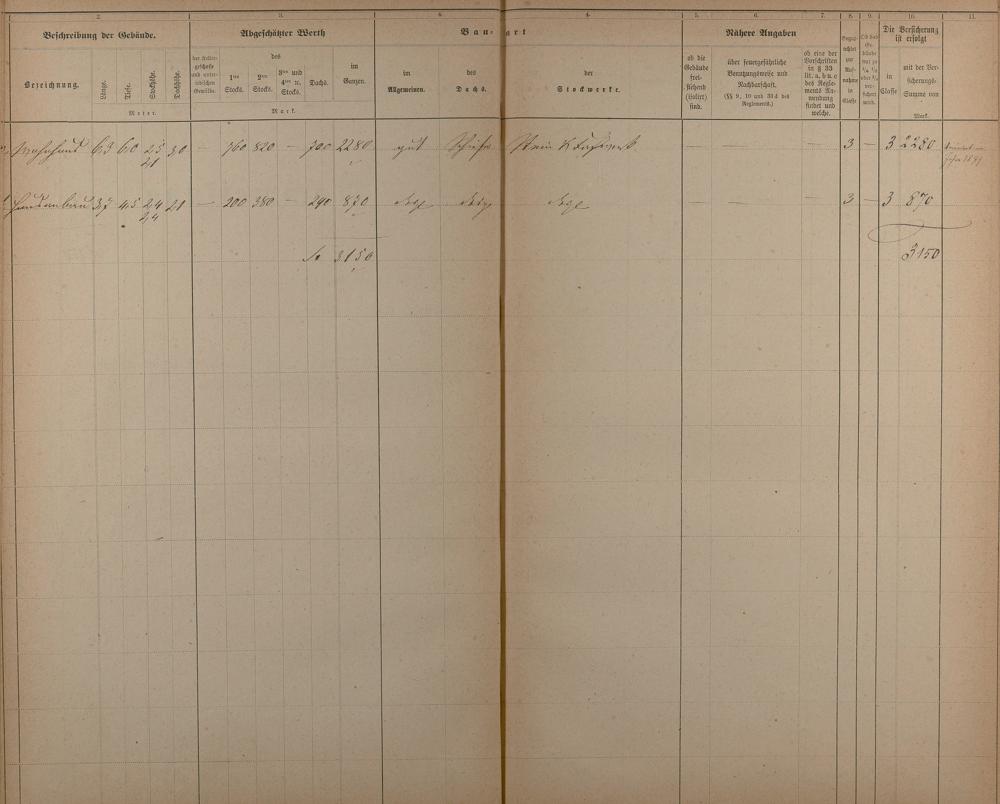 2. 3. 4. 4. 5. 6. 7. 8. 9. 10. 11.
Beschreibung der Gebäude. Abgeschätzter Werth Bau-art Nähere Angaben Die Versicherung ist erfolgt
Bezeichnung. Länge. Tiefe. Stockhöhe. Dachhöhe.
Meter.
der Keller-
geschosse
und unter-
irdischen
Gewölbe.
des
1ten
Stocks.
2ten
Stocks.
3ten und
4ten u.
Stocks.
Dachs.
im
Ganzen.
Mark.
im
Allgemeinen.
des
Dachs.
der
Stockwerke.
ob die
Gebäude
frei-
stehend
(isolirt)
sind.
über feuergefährliche
Benutzungsweise und
Nachbarschaft.
(§§ 9, 10 und 31 d des
Reglements.)
ob eine der
Vorschriften
in § 33
lit. a, b u. c
des Regle-
ments An-
wendung
findet und
welche.
in
Classe
mit der Ver-
sicherungs-
Summe von
Mark.
Wohnhaus 6,3 6,0 2,5 3,0 — 760 820 — 700 2280 gut Schiefer Stein & Fachwerk — — — 3 3 2280
2,1
Hausanbau 3,7 4,5 2,4 2,1 — 200 380 — 290 870 desgl desgl desgl — — — 3 3 870
2,4
Sa 3150 3150